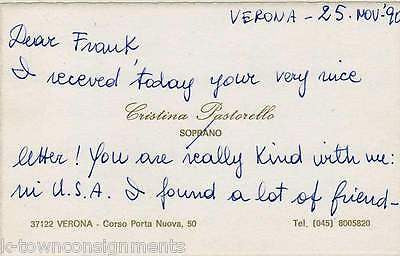 VERONA - 25. NOV. '90
Dear Frank
I receved today your very nice
Cristina Pastorello
SOPRANO
letter! You are really kind with me:
in U.S.A. I found a lot of friend-
37122 VERONA - Corso Porta Nuova, 50
Tel. (045) 8005820
k-townconsignments